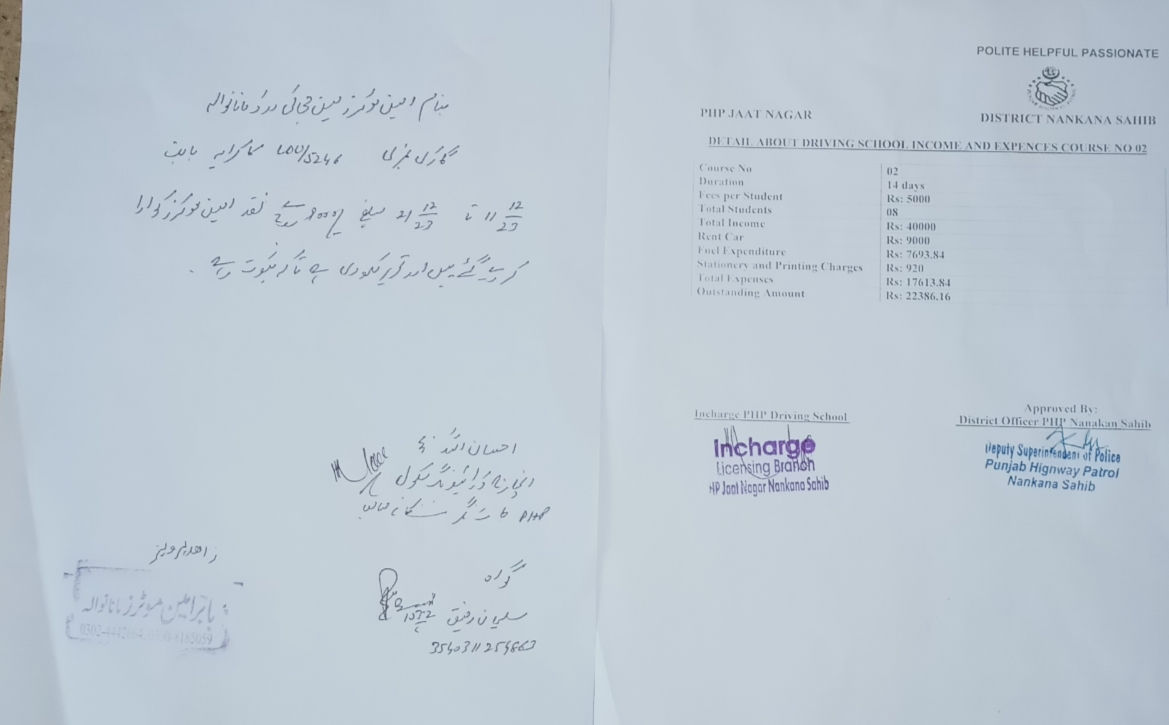 بنام امین موٹرز مین بچیکی روڈ مانانوالہ
گاڑی نمبری LOU/5246 کا کرایہ بابت
11 12/23 تا 21 12/23 مبلغ 9000/ روپے نقد امین موٹرز کو ادا
کر دیے گئے ہیں اور تحریر لکھ دی ہے تاکہ ثبوت رہے۔
احسان اللہ
انچارج ڈرائیونگ سکول
PHP جاٹ نگر ننکانہ صاحب
زاھد پرویز
بابر امین موٹرز مانانوالہ
گواہ
سلیمان رفیق
POLITE HELPFUL PASSIONATE
PHP JAAT NAGAR
DISTRICT NANKANA SAHIB
DETAIL ABOUT DRIVING SCHOOL INCOME AND EXPENCES COURSE NO 02
Course No 02
Duration 14 days
Fees per Student Rs: 5000
Total Students 08
Total Income Rs: 40000
Rent Car Rs: 9000
Fuel Expenditure Rs: 7693.84
Stationery and Printing Charges Rs: 920
Total Expenses Rs: 17613.84
Outstanding Amount Rs: 22386.16
Incharge PHP Driving School
Incharge
Licensing Branch
HP Jaat Nagar Nankana Sahib
Approved By:
District Officer PHP Nanakan Sahib
Deputy Superintendent of Police
Punjab Highway Patrol
Nankana Sahib